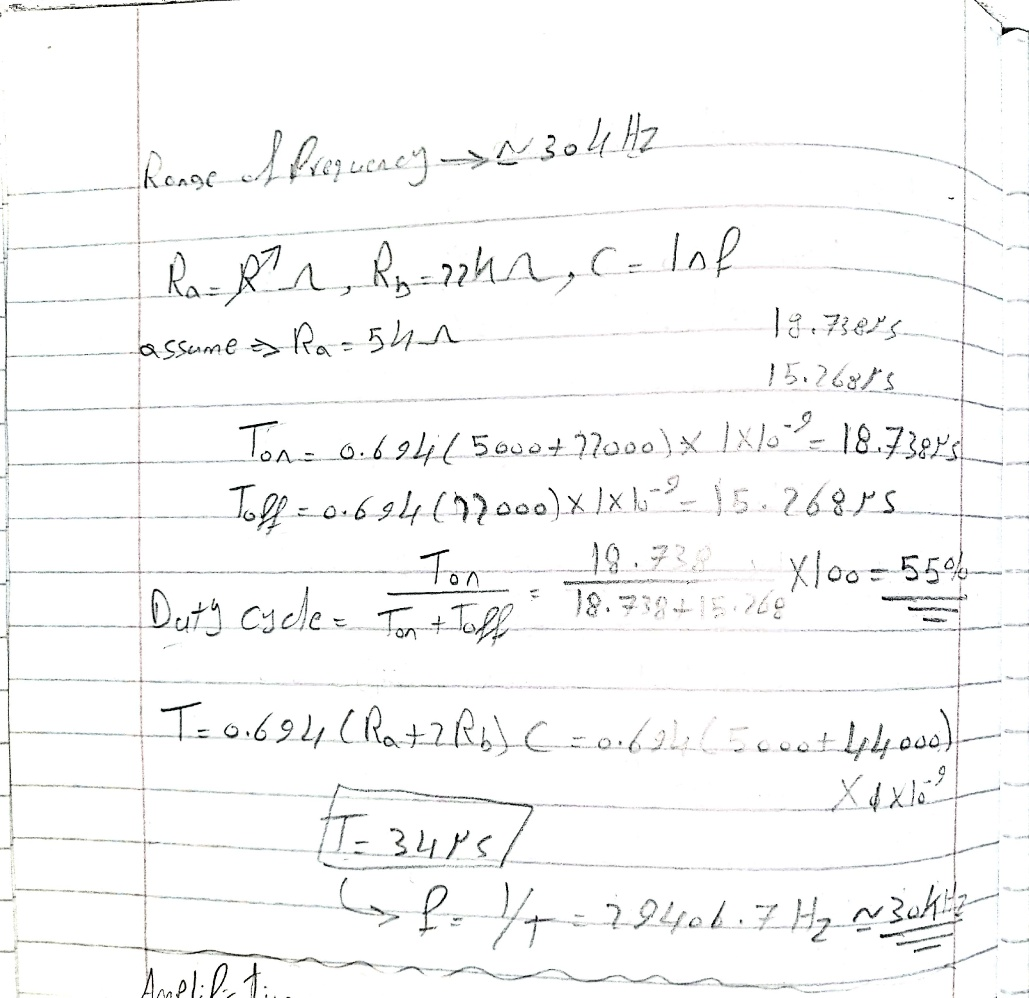 Range of frequency → ≃ 30 kHz
Ra = R↗ Ω, Rb = 22kΩ, C = 1nf
assume ⇒ Ra = 5kΩ
18.738μs
15.268μs
Ton = 0.694(5000+22000) × 1×10⁻⁹ = 18.738μs
Toff = 0.694(22000)×1×10⁻⁹ = 15.268μs
Duty cycle = Ton / (Ton + Toff) = 18.738 / (18.738+15.268) × 100 = 55%
T = 0.694 (Ra+2Rb) C = 0.694(5000+44000)
×1×10⁻⁹
T = 34μs
↳ f = 1/T = 29406.7 Hz ≃ 30kHz